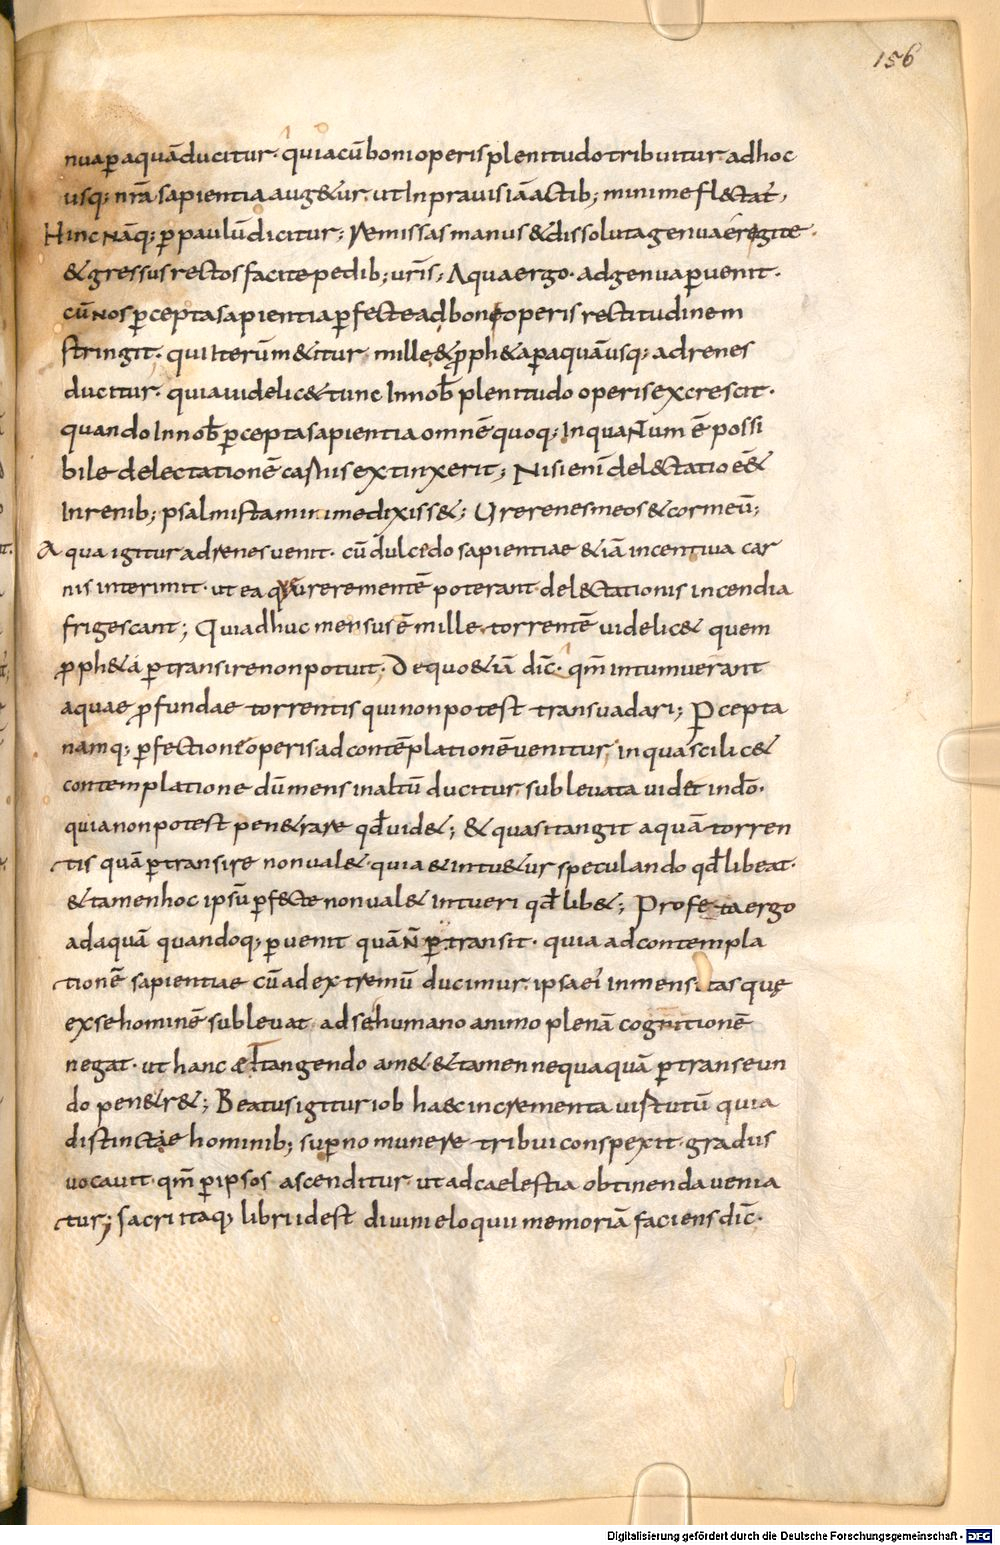 156
nua ꝑ aquā ducitur· quia cū boni operis plenitudo tribuitur· ad hoc
usq; nr̄a sapientia aug&ur· ut In prauis iā actib; minime fl&ctat,
Hinc nāq; ꝑ paulū dicitur; Remissas manus & dissoluta genua erigite·
& gressus rectos facite pedib; ur̄is; Aqua ergo· ad genua ꝑuenit·
cū nos ꝑcepta sapientia ꝑfecte ad boni operis rectitudinem
stringit· qui Iterū m&itur mille & ꝓph&a ꝑ aquā usq; ad renes
ducitur· quia uidelic& tunc In nob̄ plenitudo operis excrescit·
quando In nob̄ ꝑcepta sapientia omnē quoq; In quantum ē possi
bile delectationē carnis extinxerit; Nisi enī del&ctatio eē&
In renib; psalmista minime dixiss&; Ure renes meos & cor meū;
Aqua igitur ad renes uenit· cū dulcedo sapientiae &iā incentiua car
nis interimit· ut ea quae urere mentē poterant· del&ctationis incendia
frigescant; Qui adhuc mensus ē mille· torrentē uidelic& quem
ꝓph&a ꝑtransire non potuit· De quo &iā dic̄· qm̄ intumuerant
aquae ꝓfundae torrentis qui non potest transuadari; Pcepta
namq; ꝑfectione operis ad contēplationē uenitur, in qua scilic&
contemplatione dū mens in altū ducitur· subleuata uidet in do·
quia non potest pen&rare qd̄ uid&; & quasi tangit aquā torren
tis quā ꝑtransire non ual& quia & intu&ur speculando qd̄ libeat·
& tamen hoc ipsū ꝑf&cte non ual& intueri qd̄ lib&; Profeta ergo
ad aquā quandoq; ꝑuenit quā n̄ ꝑtransit· quia ad contempla
tionē sapientiae cū ad extremū ducimur· ipsa ei inmensitas quę
ex se hominē subleuat ad se humano animo plenā cognitionē
negat· ut hanc & tangendo am& & tamen nequaquā ꝑtranseun
do pen&r&; Beatus igitur iob haec incrementa uirtutū quia
distinctae hominib; suꝑno munere tribui conspexit· gradus
uocauit· qm̄ ꝑ ipsos ascenditur· ut ad caelestia obtinenda uenia
tur; sacri itaq; libri idest diuini eloquii memoriā faciens dic̄·
Digitalisierung gefördert durch die Deutsche Forschungsgemeinschaft - DFG